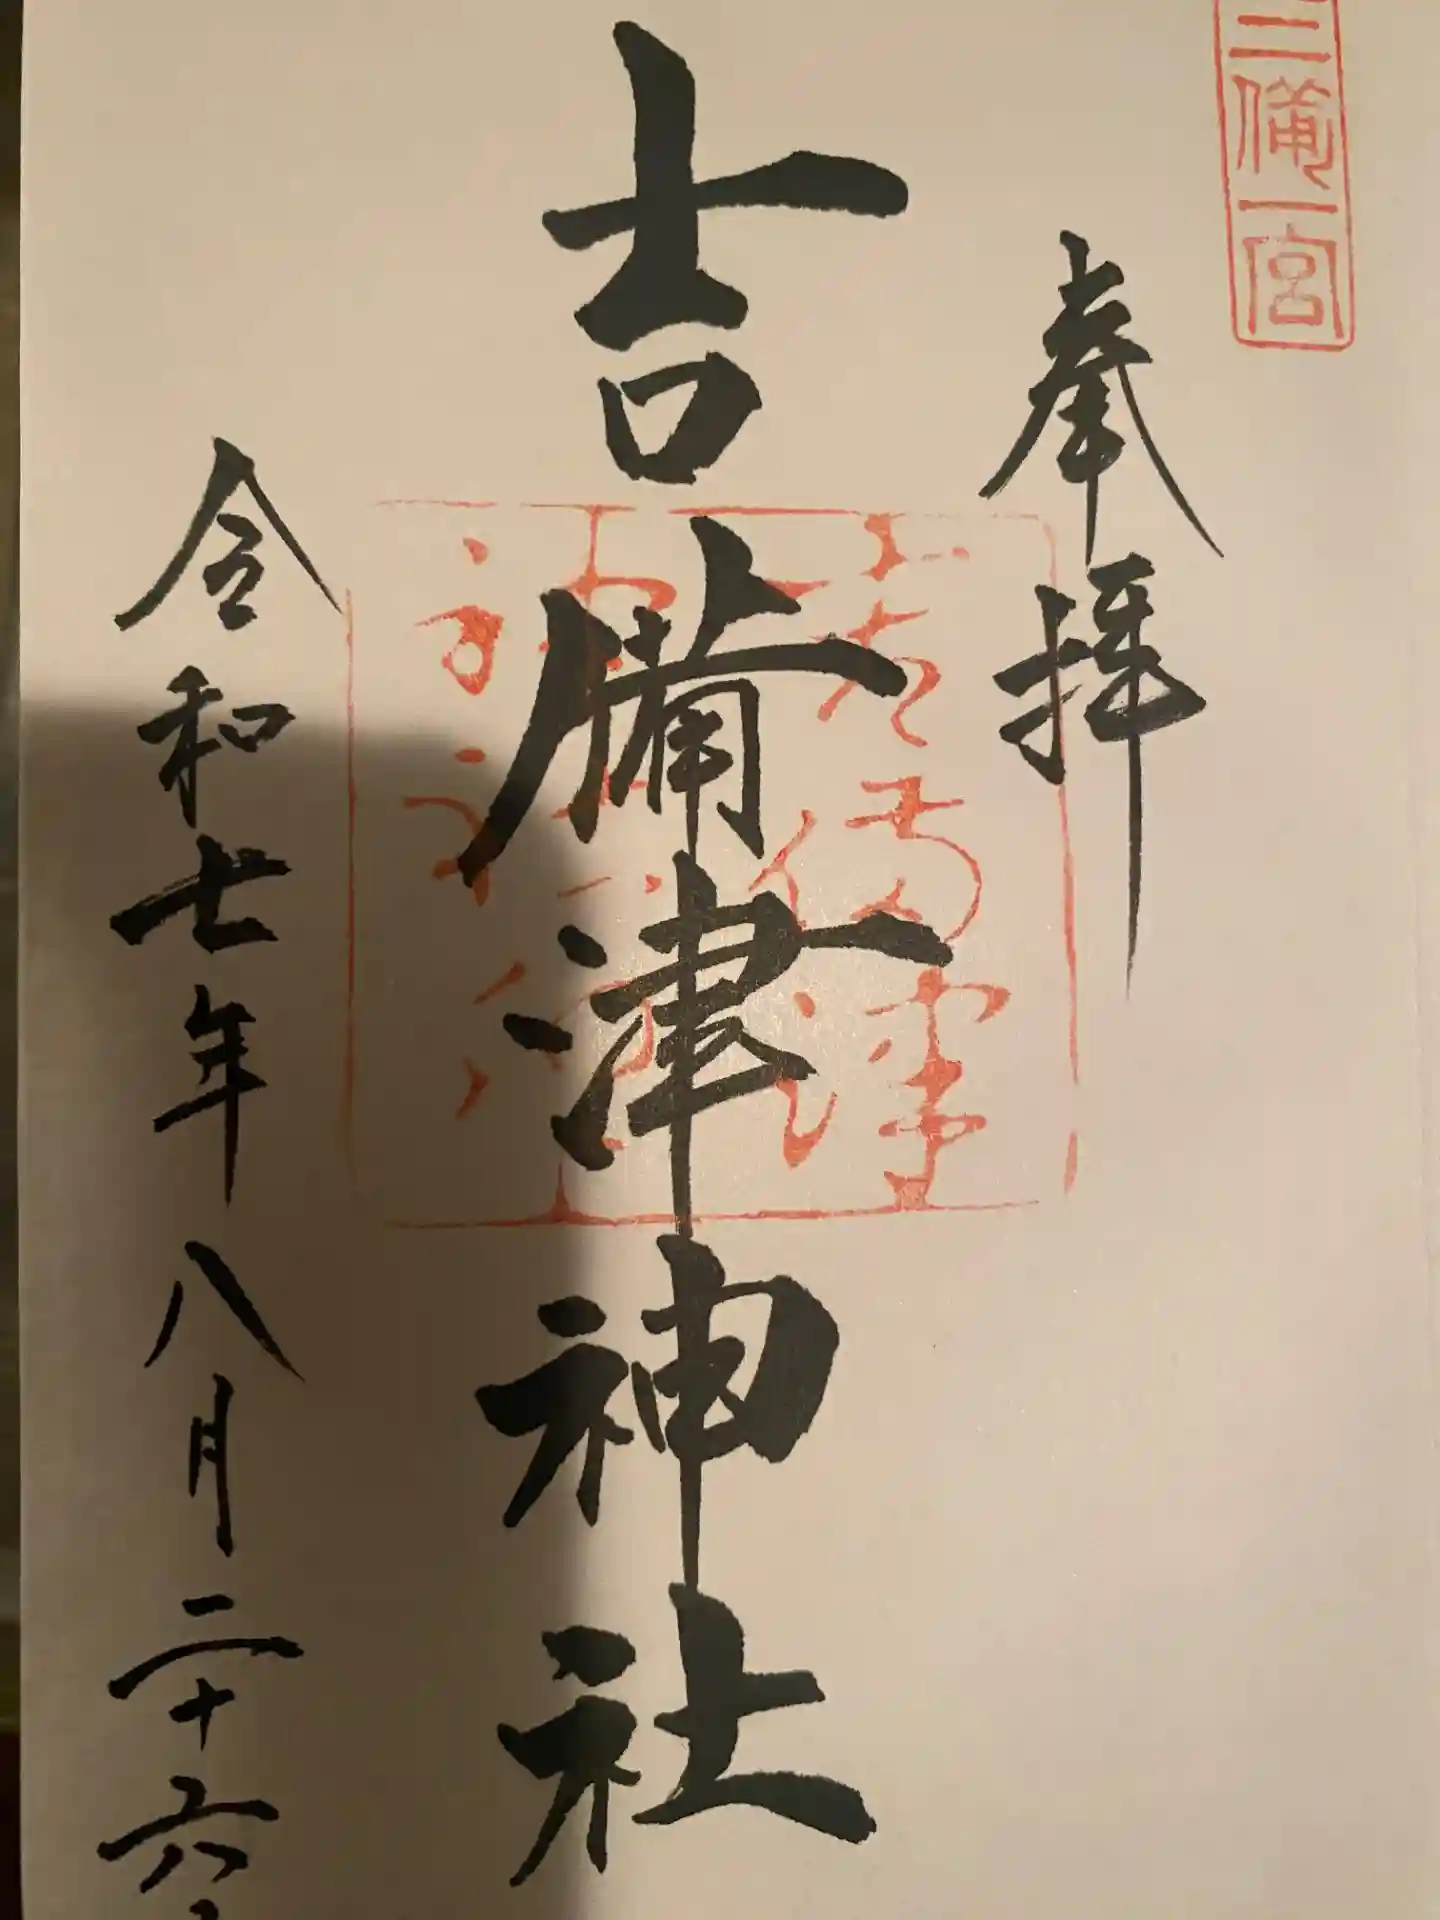 三備一宮
奉拝
吉備津神社
令和七年八月二十六